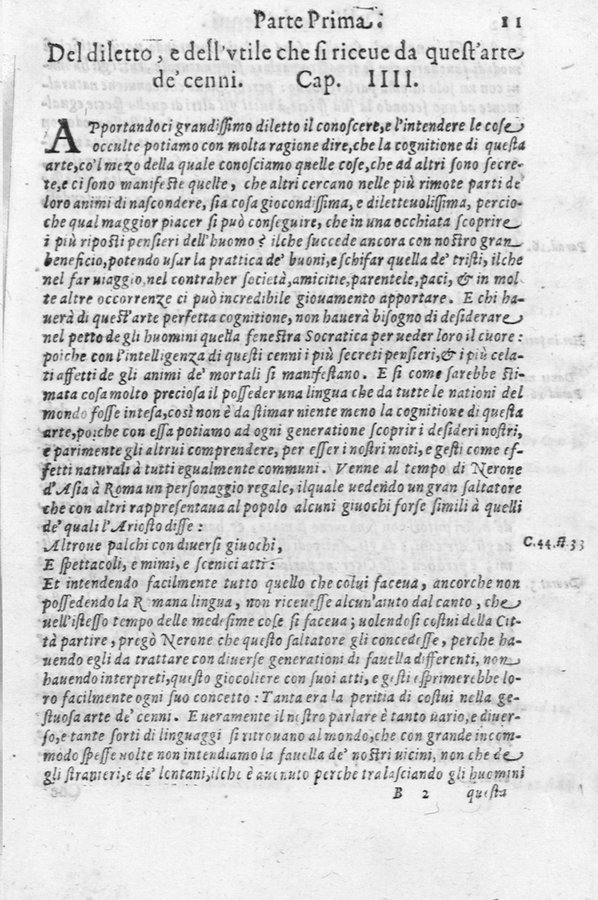 Parte Prima. 11
Del diletto, e dell'vtile che si riceue da quest'arte
de' cenni. Cap. IIII.
APportandoci grandissimo diletto il conoscere, e l'intendere le cose
occulte potiamo con molta ragione dire, che la cognitione di questa
arte, co'l mezo della quale conosciamo quelle cose, che ad altri sono secre-
te, e ci sono manifeste quelle, che altri cercano nelle più rimote parti de'
loro animi di nascondere, sia cosa giocondissima, e diletteuolissima, percio-
che qual maggior piacer si può conseguire, che in una occhiata scoprire
i più riposti pensieri dell'huomo? ilche succede ancora con nostro gran
beneficio, potendo usar la prattica de' buoni, e schifar quella de' tristi, ilche
nel far uiaggio, nel contraher società, amicitie, parentele, paci, & in mol
te altre occorrenze ci può incredibile giouamento apportare. E chi ha-
uerà di quest'arte perfetta cognitione, non hauerà bisogno di desiderare
nel petto de gli huomini quella fenestra Socratica per ueder loro il cuore:
poiche con l'intelligenza di questi cenni i più secreti pensieri, & i più cela-
ti affetti de gli animi de' mortali si manifestano. E si come sarebbe sti-
mata cosa molto preciosa il posseder una lingua che da tutte le nationi del
mondo fosse intesa, così non è da stimar niente meno la cognitione di questa
arte, poiche con essa potiamo ad ogni generatione scoprir i desideri nostri,
e parimente gli altrui comprendere, per esser i nostri moti, e gesti come ef-
fetti naturali à tutti egualmente communi. Venne al tempo di Nerone
d'Asia à Roma un personaggio regale, ilquale uedendo un gran saltatore
che con altri rappresentaua al popolo alcuni giuochi forse simili à quelli
de' quali l'Ariosto disse:
Altroue palchi con diuersi giuochi, C.44.st.33
E spettacoli, e mimi, e scenici atti:
Et intendendo facilmente tutto quello che colui faceua, ancorche non
possedendo la Romana lingua, non riceuesse alcun'aiuto dal canto, che
nell'istesso tempo delle medesime cose si faceua; uolendosi costui della Cit-
tà partire, pregò Nerone che questo saltatore gli concedesse, perche ha-
uendo egli da trattare con diuerse generationi di fauella differenti, non
hauendo interpreti, questo giocoliere con suoi atti, e gesti esprimerebbe lo-
ro facilmente ogni suo concetto: Tanta era la peritia di costui nella ge-
stuosa arte de' cenni. E ueramente il nostro parlare è tanto uario, e diuer-
so, e tante sorti di linguaggi si ritrouano al mondo, che con grande incom-
modo spesse uolte non intendiamo la fauella de' nostri uicini, non che de
gli stranieri, e de' lontani, ilche è auenuto perche tralasciando gli huomini
B 2 questa